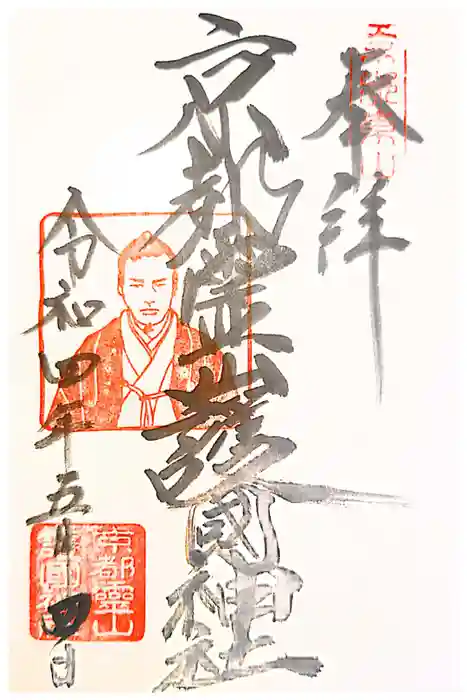 奉拝
京都霊山護國神社
令和四年五月四日
京都霊山